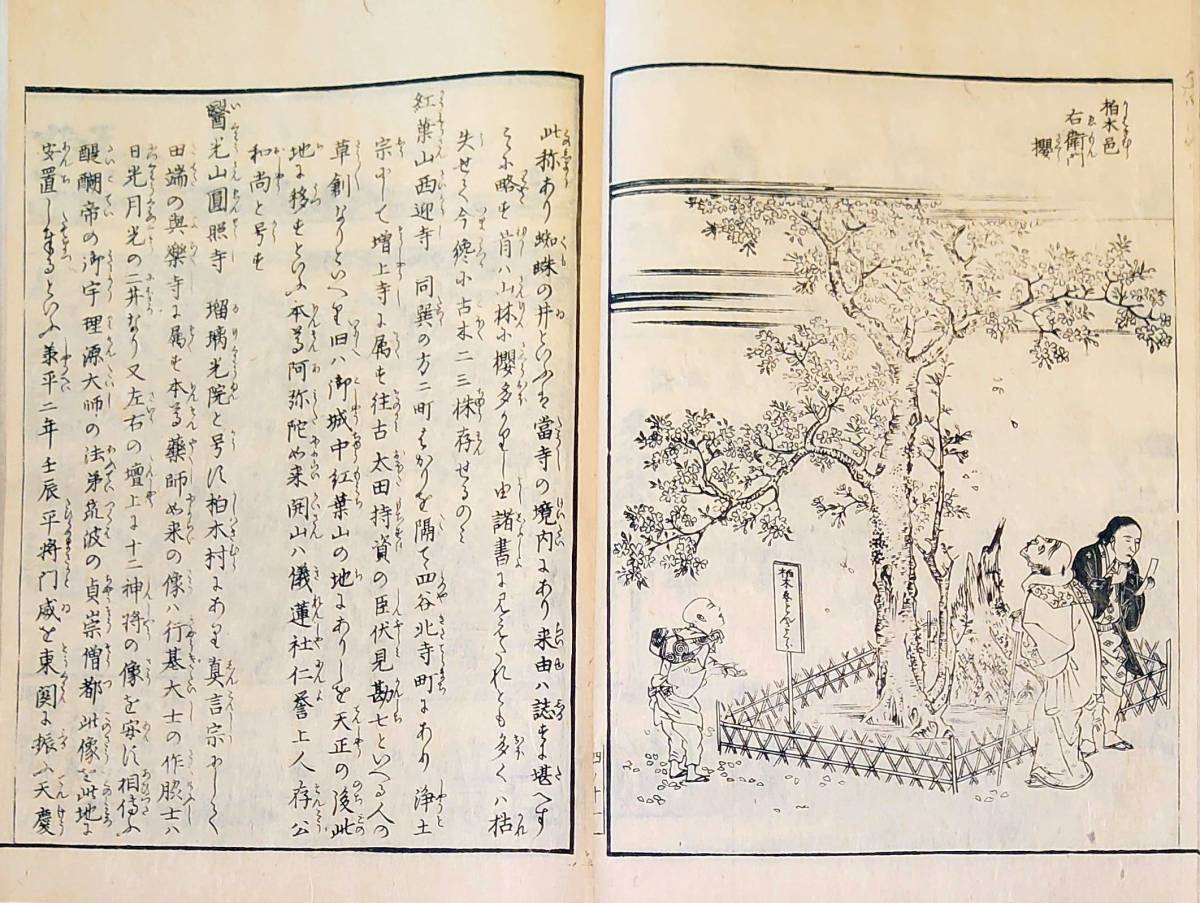 柏木邑
右衛門
櫻
柏木ゑもんさくら
四ノ十一
此称あり蜘蛛の井といふは當寺の境内にあり来由ハ誌すに堪へす
こゝに略す昔ハ山林に櫻多かりし由諸書に見えたれとも多くハ枯
失せて今纔に古木二三株存せるのミ
紅葉山西迎寺 同巽の方二町はかりを隔て四谷北寺町にあり 浄土
宗にして増上寺に属す往古太田持資の臣伏見勘七といへる人の
草創なりといへり旧ハ御城中紅葉山の地にありしを天正の後此
地に移すといふ本尊阿弥陀如来開山ハ儀蓮社仁誉上人存公
和尚と号す
醫光山圓照寺 瑠璃光院と号す柏木村にあり真言宗にして
田端の與樂寺に属す本尊藥師如来の像ハ行基大士の作脇士ハ
日光月光の二井なり又左右の壇上に十二神将の像を安す相傳ふ
醍醐帝の御宇理源大師の法弟筑波の貞崇僧都此像を此地に
安置し奉るといふ承平二年壬辰平将门威を東関に振ふ天慶